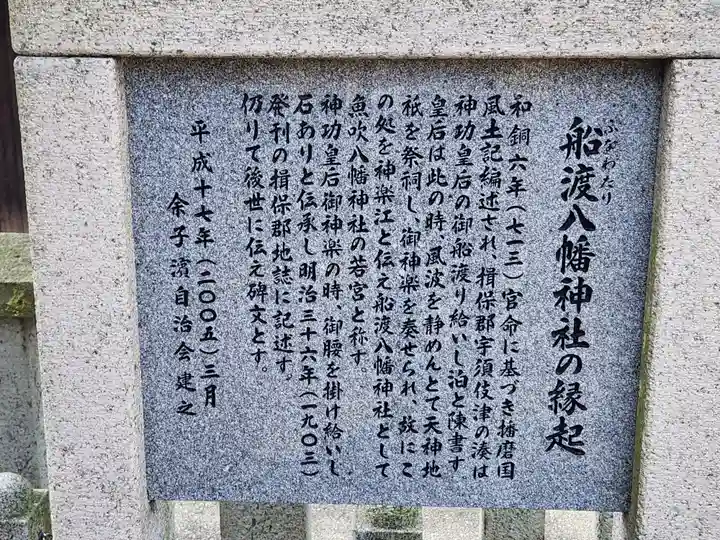 船渡八幡神社の縁起
ふなわたり
和銅六年(七一三)官命に基づき播磨国
風土記編述され、揖保郡宇須伎津の湊は
神功皇后の御船渡り給いし泊と陳書す。
皇后は此の時、風波を静めんとて天神地
祇を祭祠し、御神楽を奏せられ、故にこ
の処を神楽江と伝え船渡八幡神社として
魚吹八幡神社の若宮と称す。
神功皇后御神楽の時、御腰を掛け給いし
石ありと伝承し明治三十六年(一九〇三)
発刊の揖保郡地誌に記述す。
仍りて後世に伝え碑文とす。
平成十七年(二〇〇五)三月
余子濱自治会建之